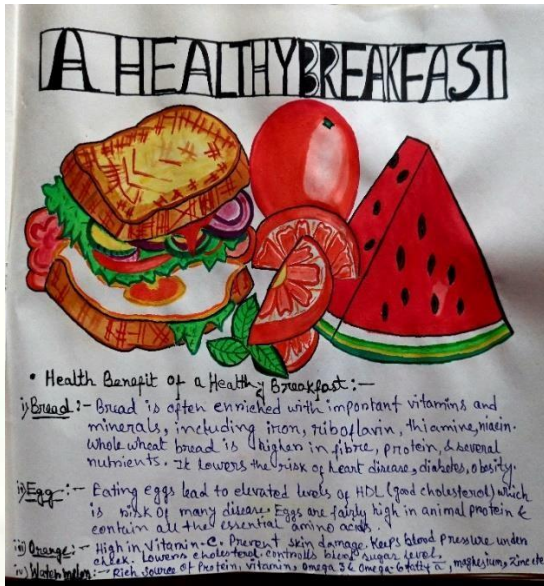 A HEALTHY BREAKFAST
• Health Benefit of a Healthy Breakfast:-
i) Bread:- Bread is often enriched with important vitamins and
minerals, including iron, riboflavin, thiamine, niacin.
whole wheat bread is higher in fibre, protein, & several
nutrients. It lowers the risk of heart disease, diabetes, obesity.
ii) Egg:- Eating eggs lead to elevated levels of HDL (good cholesterol) which
is risk of many disease. Eggs are fairly high in animal protein &
contain all the essential amino acids.
iii) Orange:- High in Vitamin-C. Prevent skin damage. Keeps blood pressure under
chek. Lowers cholesterol. controlls blood sugar level.
iv) Water melon:- Rich source of Protein, vitamin, Omega 3 & Omega-6 fatty a, maghesium, Zinc etc